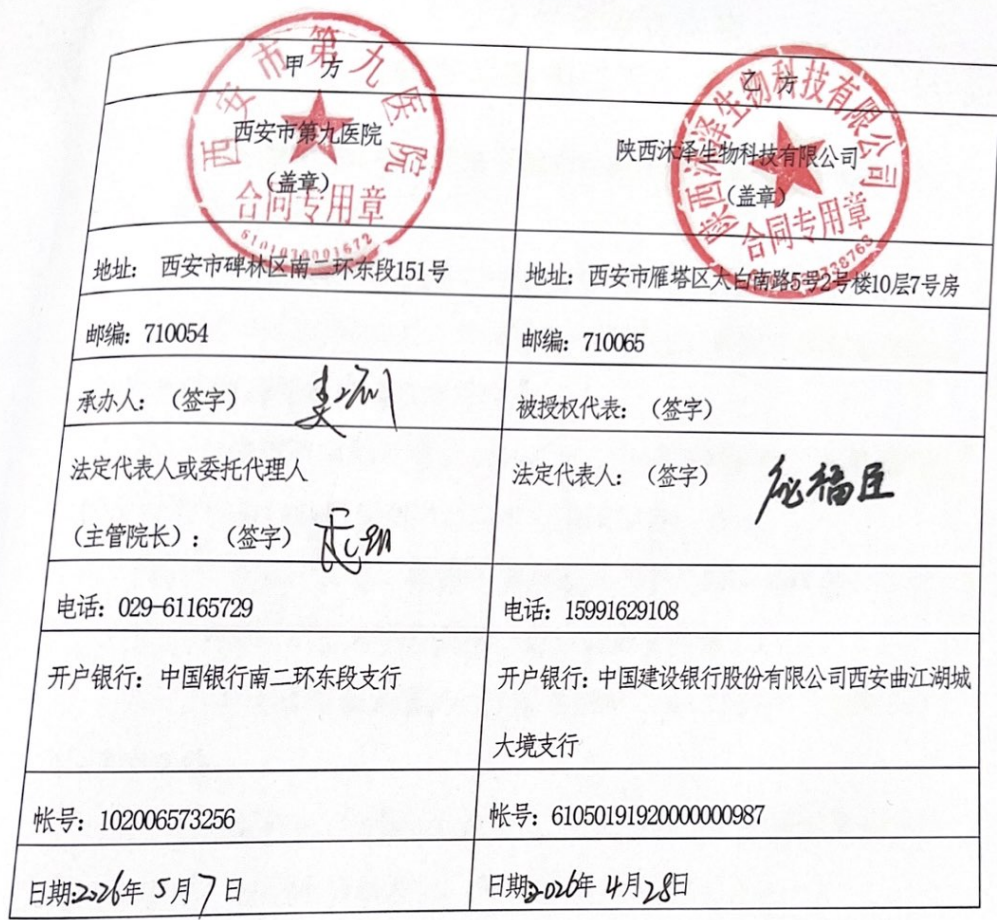 甲方
乙方
西安市第九医院
(盖章)
陕西沐泽生物科技有限公司
(盖章)
西安市第九医院
合同专用章
6101030001672
陕西沐泽生物科技有限公司
合同专用章
地址: 西安市碑林区南二环东段151号
地址: 西安市雁塔区太白南路5号2号楼10层7号房
邮编: 710054
邮编: 710065
承办人: (签字)
被授权代表: (签字)
法定代表人或委托代理人
(主管院长): (签字)
法定代表人: (签字)
电话: 029-61165729
电话: 15991629108
开户银行: 中国银行南二环东段支行
开户银行: 中国建设银行股份有限公司西安曲江湖城
大境支行
帐号: 102006573256
帐号: 61050191920000000987
日期:2026年 5月7日
日期:2026年 4月28日